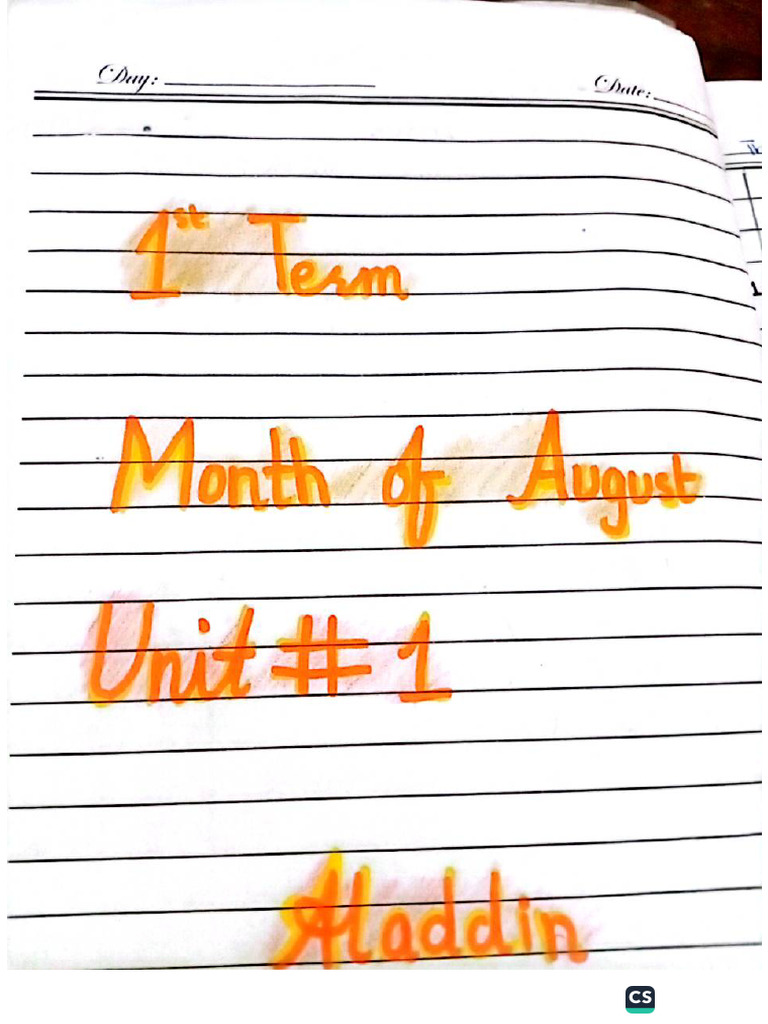 Day: Date:
1st Term
Month of August
Unit # 1
Aladdin
CS